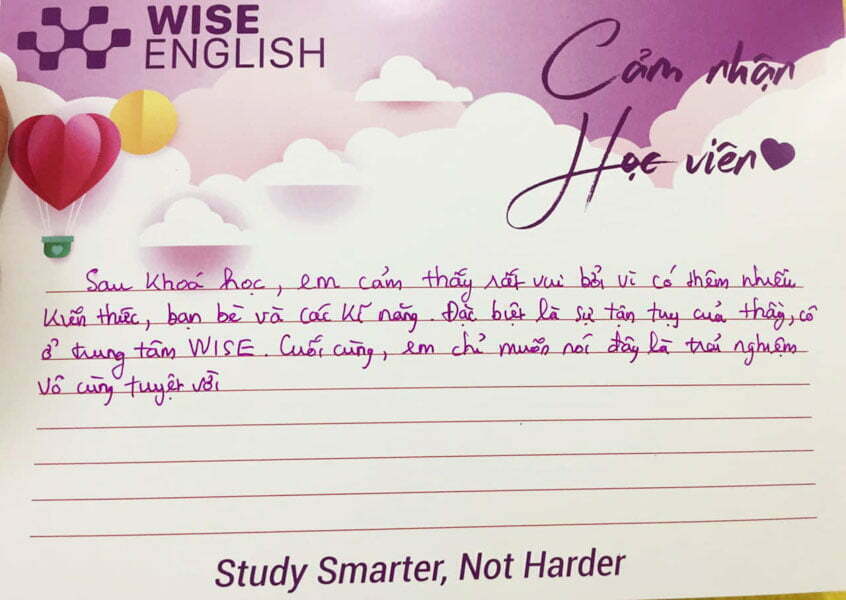 WISE
ENGLISH
Cảm nhận
Học viên
Sau khoá học, em cảm thấy rất vui bởi vì có thêm nhiều
kiến thức, bạn bè và các kĩ năng. Đặc biệt là sự tận tuỵ của thầy, cô
ở trung tâm WISE. Cuối cùng, em chỉ muốn nói đây là trải nghiệm
vô cùng tuyệt vời
Study Smarter, Not Harder